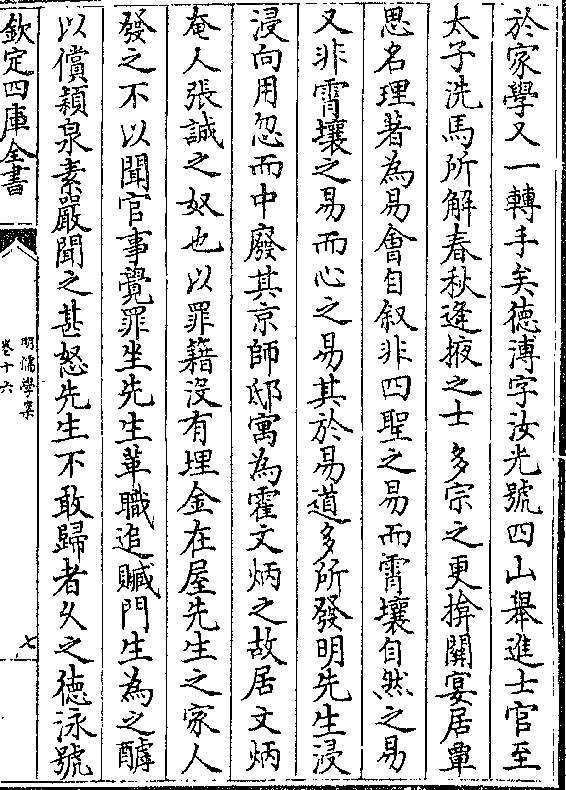 於家學又一轉手矣德溥字汝光號四山舉進士官至
太子洗馬所解春秋逢掖之士多宗之更揜關宴居覃
思名理著為易會自叙非四聖之易而霄壤自然之易
又非霄壤之易而心之易其於易道多所發明先生浸
浸向用忽而中廢其京師邸寓為霍文炳之故居文炳
奄人張誠之奴也以罪籍沒有埋金在屋先生之家人
發之不以聞官事覺罪坐先生革職追贓門生為之醵
以償潁泉素嚴聞之甚怒先生不敢歸者久之德泳號
欽定四庫全書
明儒學案
卷十六
七